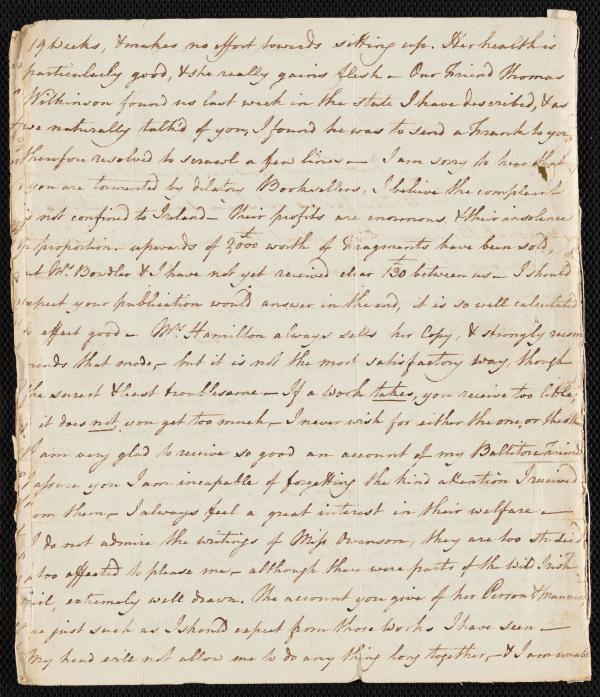 19 weeks, & makes no effort towards sitting up. Her health is
particularly good, & she really gains flesh – Our Friend Thomas
Wilkinson found us last week in the state I have described, & as
we naturally talk'd of you, I found he was to send a Frank to you
therefore resolved to scrawl a few lines – I am sorry to hear that
you are tormented by dilatory Booksellers, I believe the complaint
is not confined to Ireland – Their profits are enormous, & their insolence
in proportion. upwards of 2,000 worth of Fragments have been sold,
Mrs Bowdler & I have not yet received clear 130 between us – I should
expect your publication would answer in the end, it is so well calculated
to effect good – Mrs Hamilton always sells her Copy, & strongly recom
mends that mode, – but it is not the most satisfactory way, though
the surest & least troublesome – If a work takes, you receive too little,
it does not, you get too much, – I never wish for either the one, or the other
I am very glad to receive so good an account of my Ballitore Friends
I assure you I am incapable of forgetting the kind attention I received
from them, – I always feel a great interest in their welfare –
I do not admire the writings of Miss Owenson, they are too studied
& too affected to please me, – although there were parts of the wild Irish
Girl, extremely well drawn. The account you give of her Person & Manners
are just such as I should expect from those works I have seen –
My head will not allow me to do any thing long together, – & I am unable